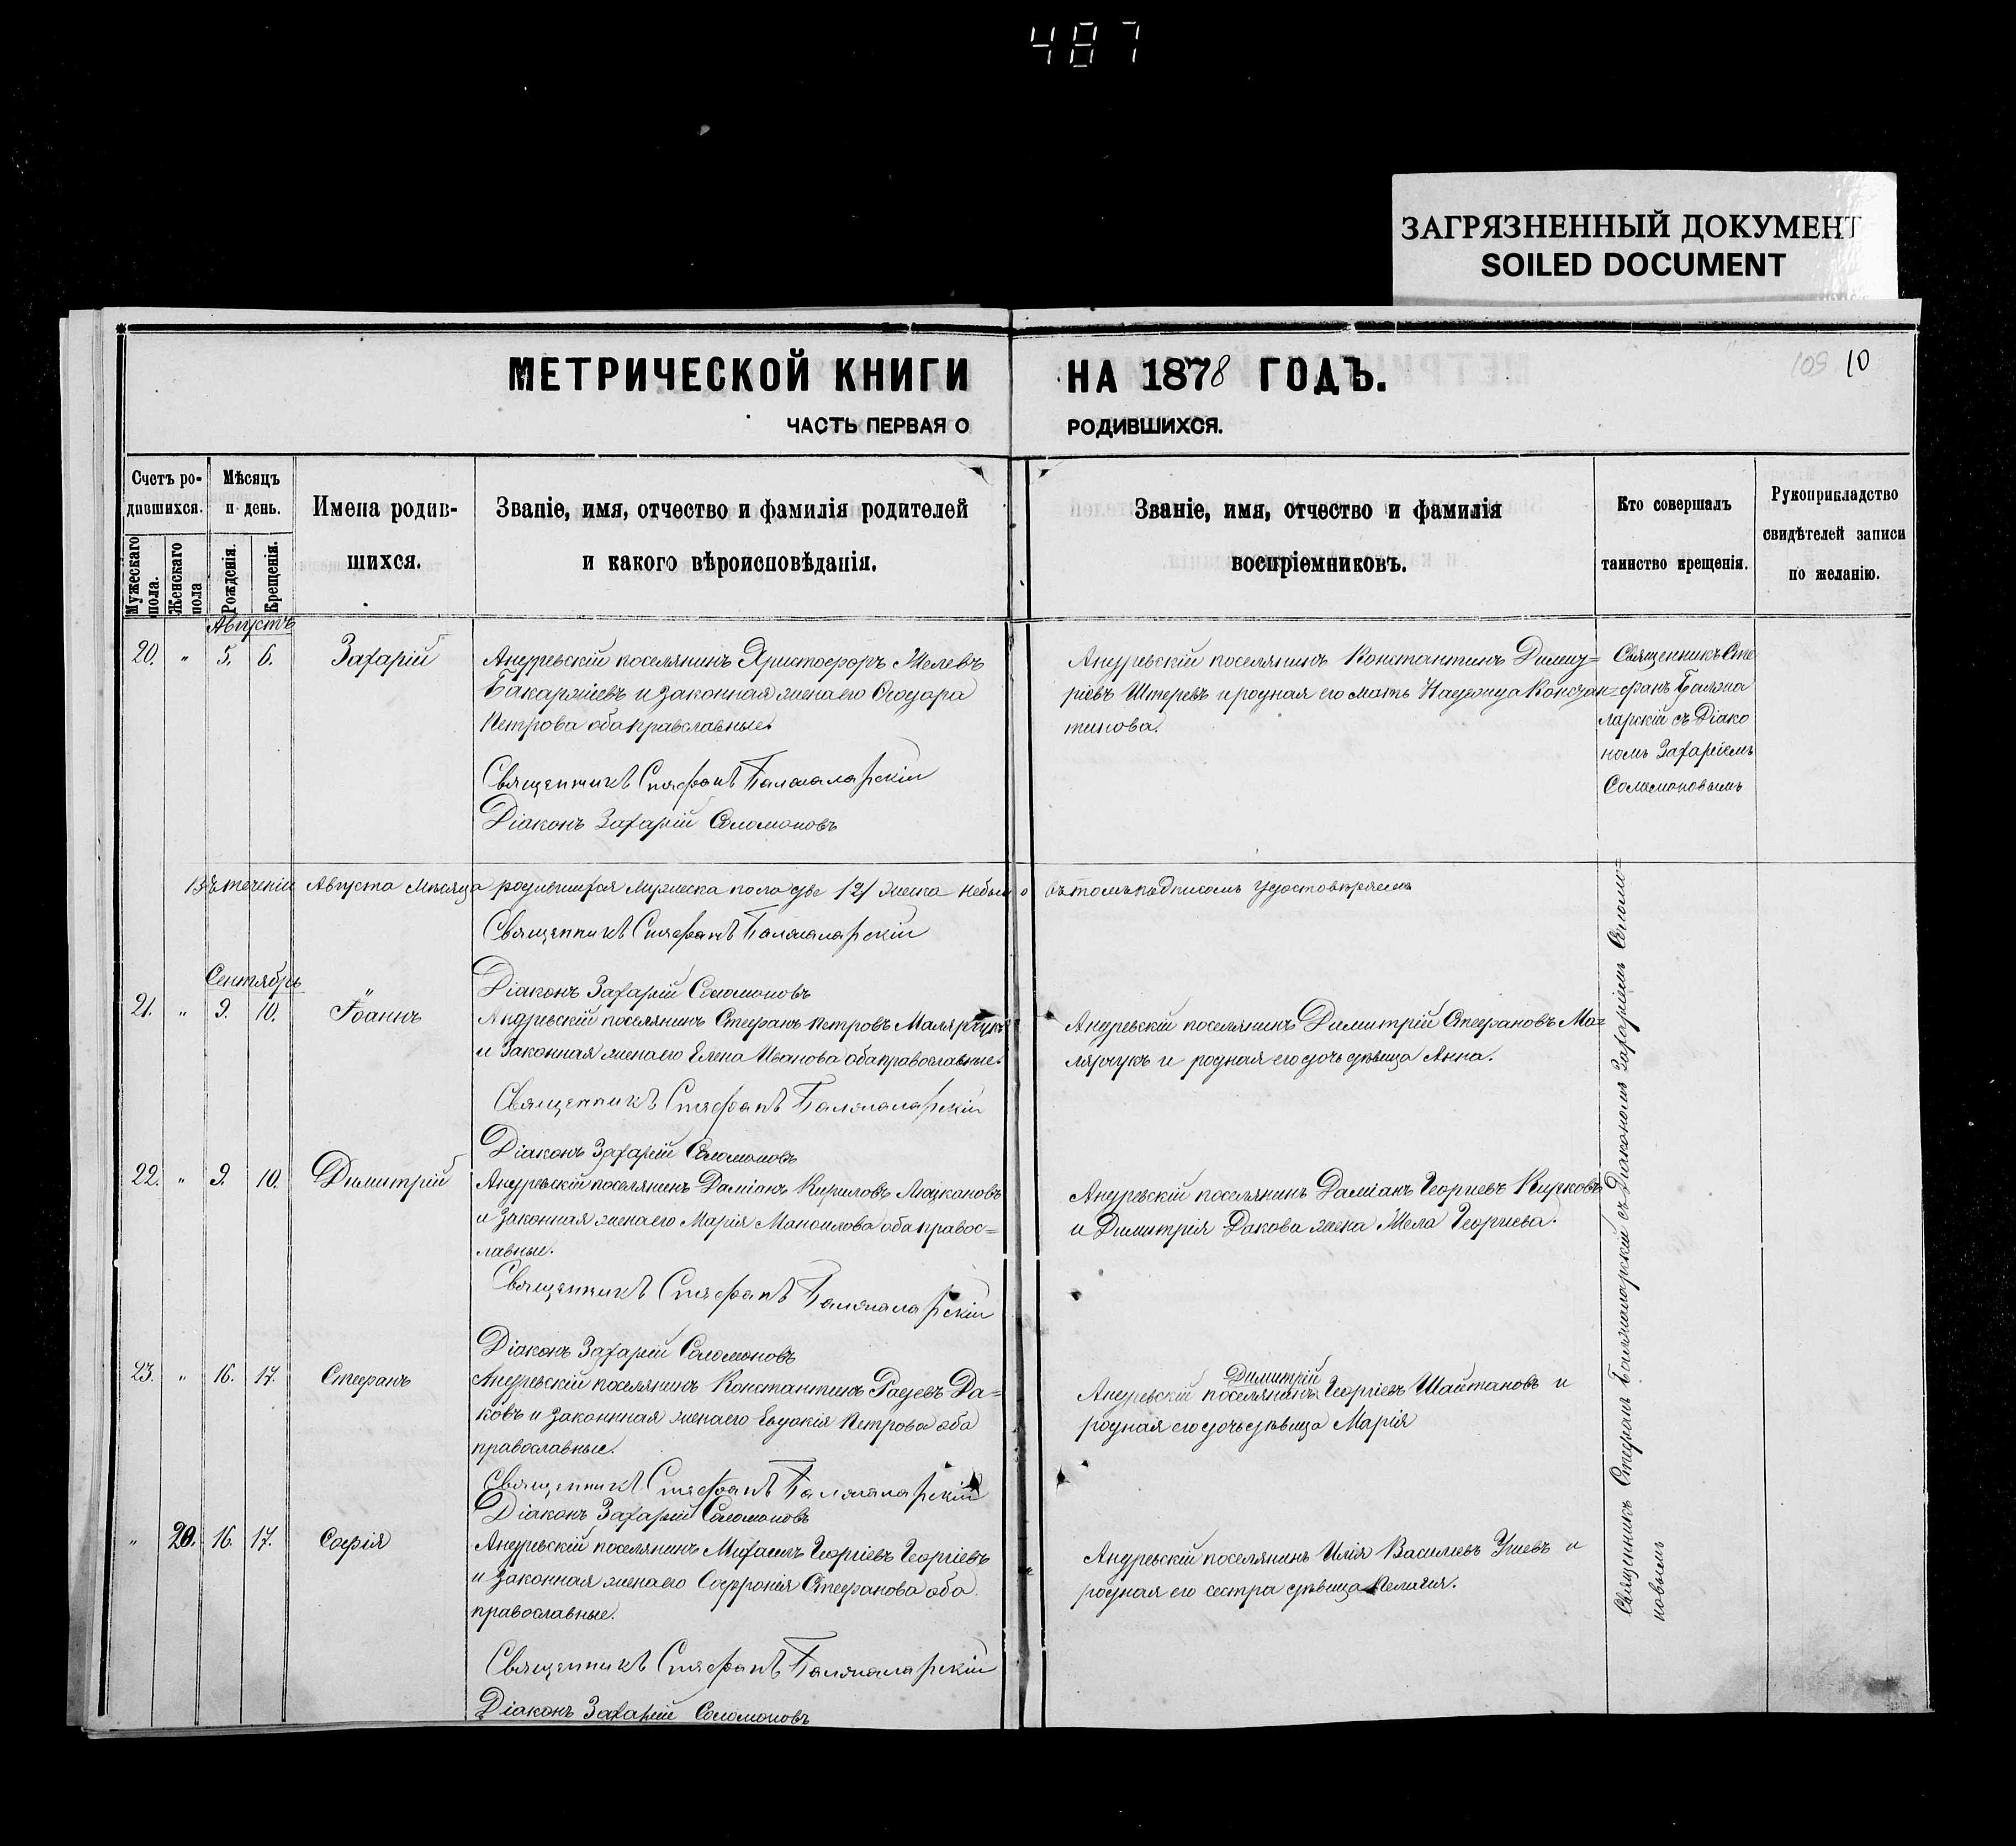 487
ЗАГРЯЗНЕННЫЙ ДОКУМЕНТ
SOILED DOCUMENT
МЕТРИЧЕСКОЙ КНИГИ НА 1878 ГОДЪ.
105 10
ЧАСТЬ ПЕРВАЯ О РОДИВШИХСЯ.
Счетъ ро-
дившихся.
Мужескаго пола.
Женскаго пола
Мѣсяцъ
и день.
Рожденія.
Крещенія.
Имена родив-
шихся.
Званіе, имя, отчество и фамилія родителей
и какого вѣроисповѣданія.
Званіе, имя, отчество и фамилія
воспріемниковъ.
Кто совершалъ
таинство крещенія.
Рукоприкладство
свидѣтелей записи
по желанію.
Августъ
20. " 5. 6. Захарій
Андреевскій поселянинъ Христофоръ Желевъ
и законная жена его Ѳеодора
Петрова оба православные.
Священникъ Стефанъ
Діаконъ Захарій Соломоновъ
Андреевскій поселянинъ Константинъ Димит=
ріевъ Штеревъ и родная его мать Надежда Констан=
тинова.
Священникъ Сте
фанъ
ларскій съ Діако
номъ Захаріемъ
Соломоновымъ
Въ теченіи Августа мѣсяца родившихся мужеска пола две /2/ женска небыло въ томъ подписомъ удостовѣряемъ
Священникъ Стефанъ
Діаконъ Захарій Соломоновъ
Сентябрь
21. " 9. 10. Іоаннъ
Андреевскій поселянинъ Стефанъ Петровъ Малярчукъ
и законная жена его Елена Иванова оба православные.
Священникъ Стефанъ
Діаконъ Захарій Соломоновъ
Андреевскій поселянинъ Димитрій Стефановъ Ма=
лярчукъ и родная его дочь дѣвица Анна.
22. " 9. 10. Димитрій
Андреевскій поселянинъ Даміанъ Кириловъ
и законная жена его Марія Маноилова оба правос=
лавные.
Священникъ Стефанъ
Діаконъ Захарій Соломоновъ
Андреевскій поселянинъ Даміанъ Георгіевъ Кирковъ
и Димитрія Дакова жена Жела Георгіева.
23. " 16. 17. Стефанъ
Андреевскій поселянинъ Константинъ Радевъ Да=
ковъ и законная жена его Евдокія Петрова оба
православные.
Священникъ Стефанъ
Діаконъ Захарій Соломоновъ
Димитрій
Андреевскій поселянинъ Георгіевъ Шайтановъ и
родная его дочь дѣвица Марія
" 20. 16. 17. Софія
Андреевскій поселянинъ Михаилъ Георгіевъ Георгіевъ
и законная жена его Софронія Стефанова оба
православные.
Священникъ Стефанъ
Діаконъ Захарій Соломоновъ
Андреевскій поселянинъ Илія Василіевъ и
родная его сестра дѣвица Пелагія.
Священникъ Стефанъ съ Діакономъ Захаріемъ Соломо=
новымъ